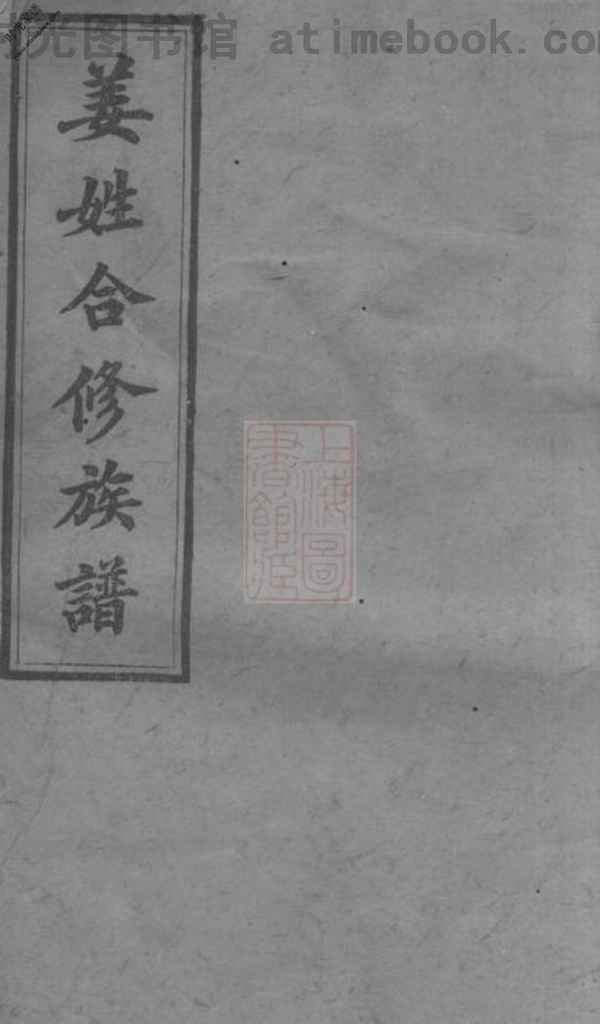 时光图书馆 atimebook.co
姜姓合修族譜
上海圖
書館藏